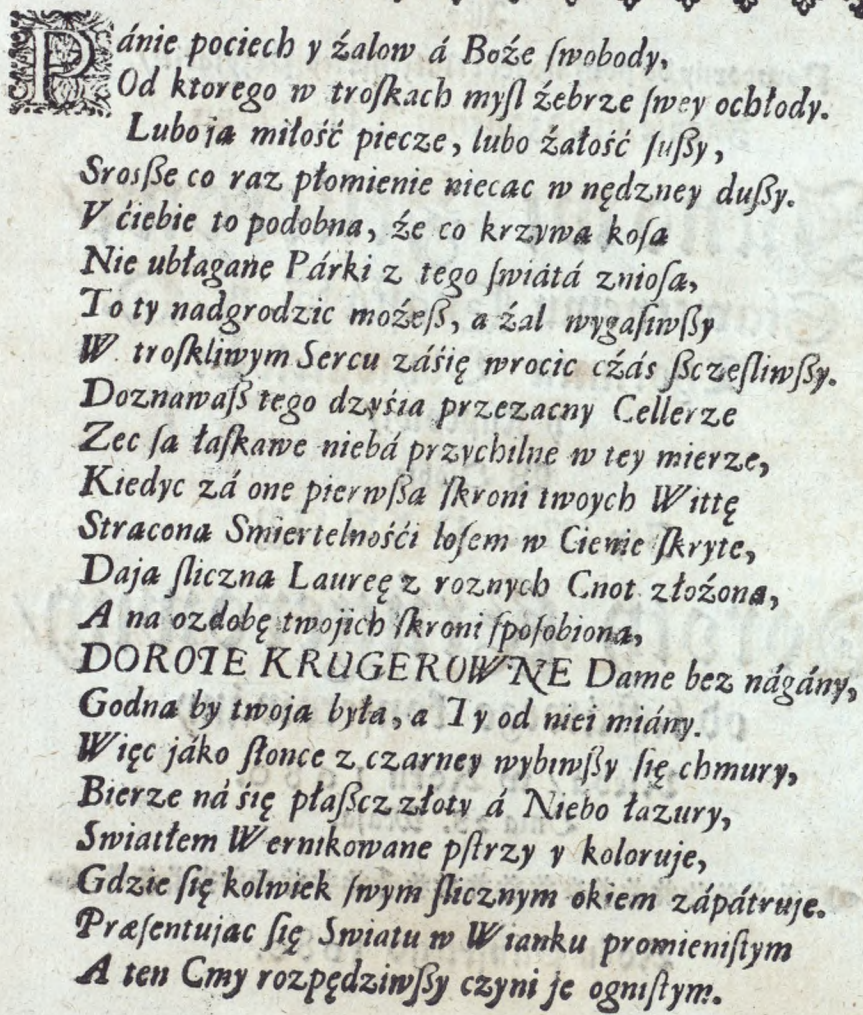 Pánie pociech y źalow á Boźe ſwobody,
Od ktorego w troſkach myſl źebrze ſwey ochłody.
Lubo ja miłość piecze, lubo źałość ſußy,
Srosße co raz płomienie niecac w nędzney dußy.
V ćiebie to podobna, źe co krzywa koſa
Nie ubłagane Párki z tego ſwiátá znioſa,
To ty nadgrodzic moźeß, a źal wygaſiwßy
W troſkliwym Sercu záśię wrocic cźás ßczeſliwßy.
Doznawaß tego dzyśia przezacny Cellerze
Zec ſa łaſkawe niebá przychilne w tey mierze,
Kiedyc zá one pierwßa ſkroni twoych Wittę
Stracona Smiertelnośći loſem w Cienie ſkryte,
Daja ſliczna Laureę z roznych Cnot złoźona,
A na ozdobę twojich ſkroni ſpoſobiona,
DOROTE KRUGEROWNE Dame bez nágány,
Godna by twoja była, a Ty od niei miány.
Więc jáko ſłonce z czarney wybiwßy ſię chmury,
Bierze ná śię płaßcz złoty á Niebo łazury,
Swiatłem Wernikowane pſtrzy y koloruje,
Gdzie ſię kolwiek ſwym ſlicznym okiem zápátruje.
Præſentujac ſię Swiatu w Wianku promieniſtym
A ten Cmy rozpędziwßy czyni je ogniſtym.